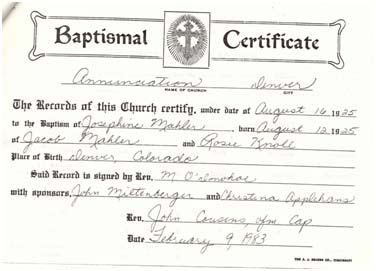 Baptismal Certificate
Annunciation Denver
NAME OF CHURCH CITY
The Records of this Church certify, under date of August 16 1925
to the Baptism of Josephine Mahler, born August 12 1925
of Jacob Mahler and Rosie Knoll
Place of Birth Denver, Colorado
Said Record is signed by Rev. M O'Donohoe
with sponsors, John Mittenberger and Christina Applehans
Rev. John Cousins, ofm Cap
Date February 9, 1983